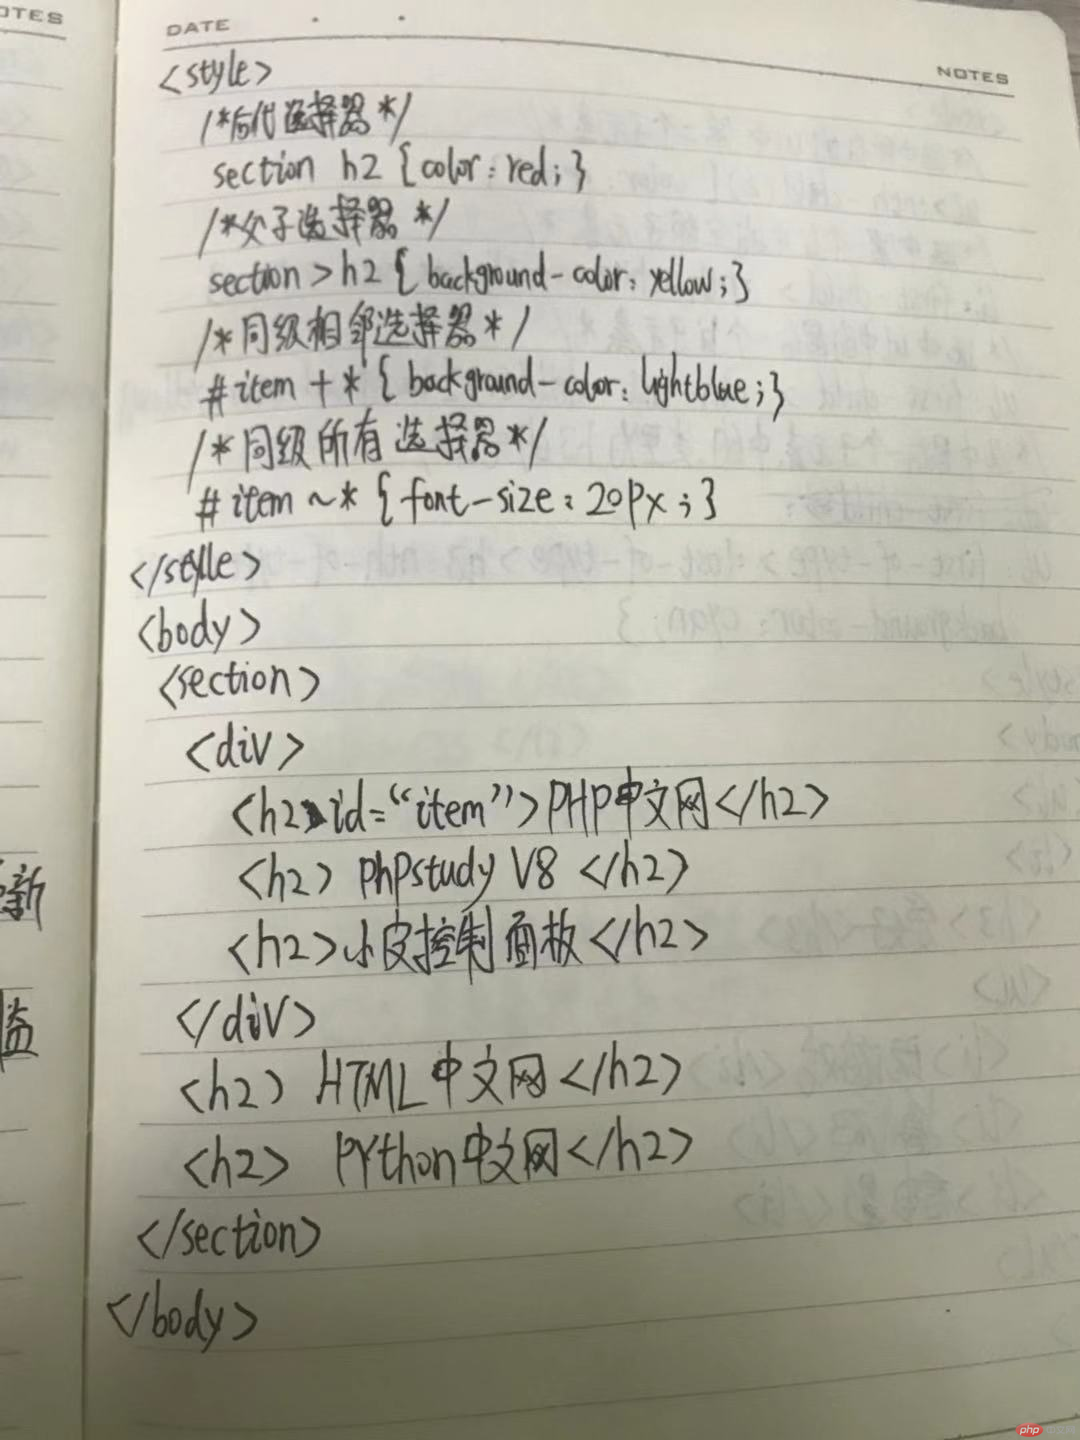 OTES
DATE
NOTES
<style>
/*后代选择器*/
section h2 {color:red;}
/*父子选择器*/
section>h2 {background-color:yellow;}
/*同级相邻选择器*/
#item + * {background-color:lightblue;}
/*同级所有选择器*/
#item ~* {font-size:20px;}
</style>
<body>
<section>
<div>
<h2 id="item">PHP中文网</h2>
<h2> phpstudy V8 </h2>
<h2>小皮控制面板</h2>
</div>
<h2> HTML中文网</h2>
<h2> PYthon中文网</h2>
</section>
</body>
新
php